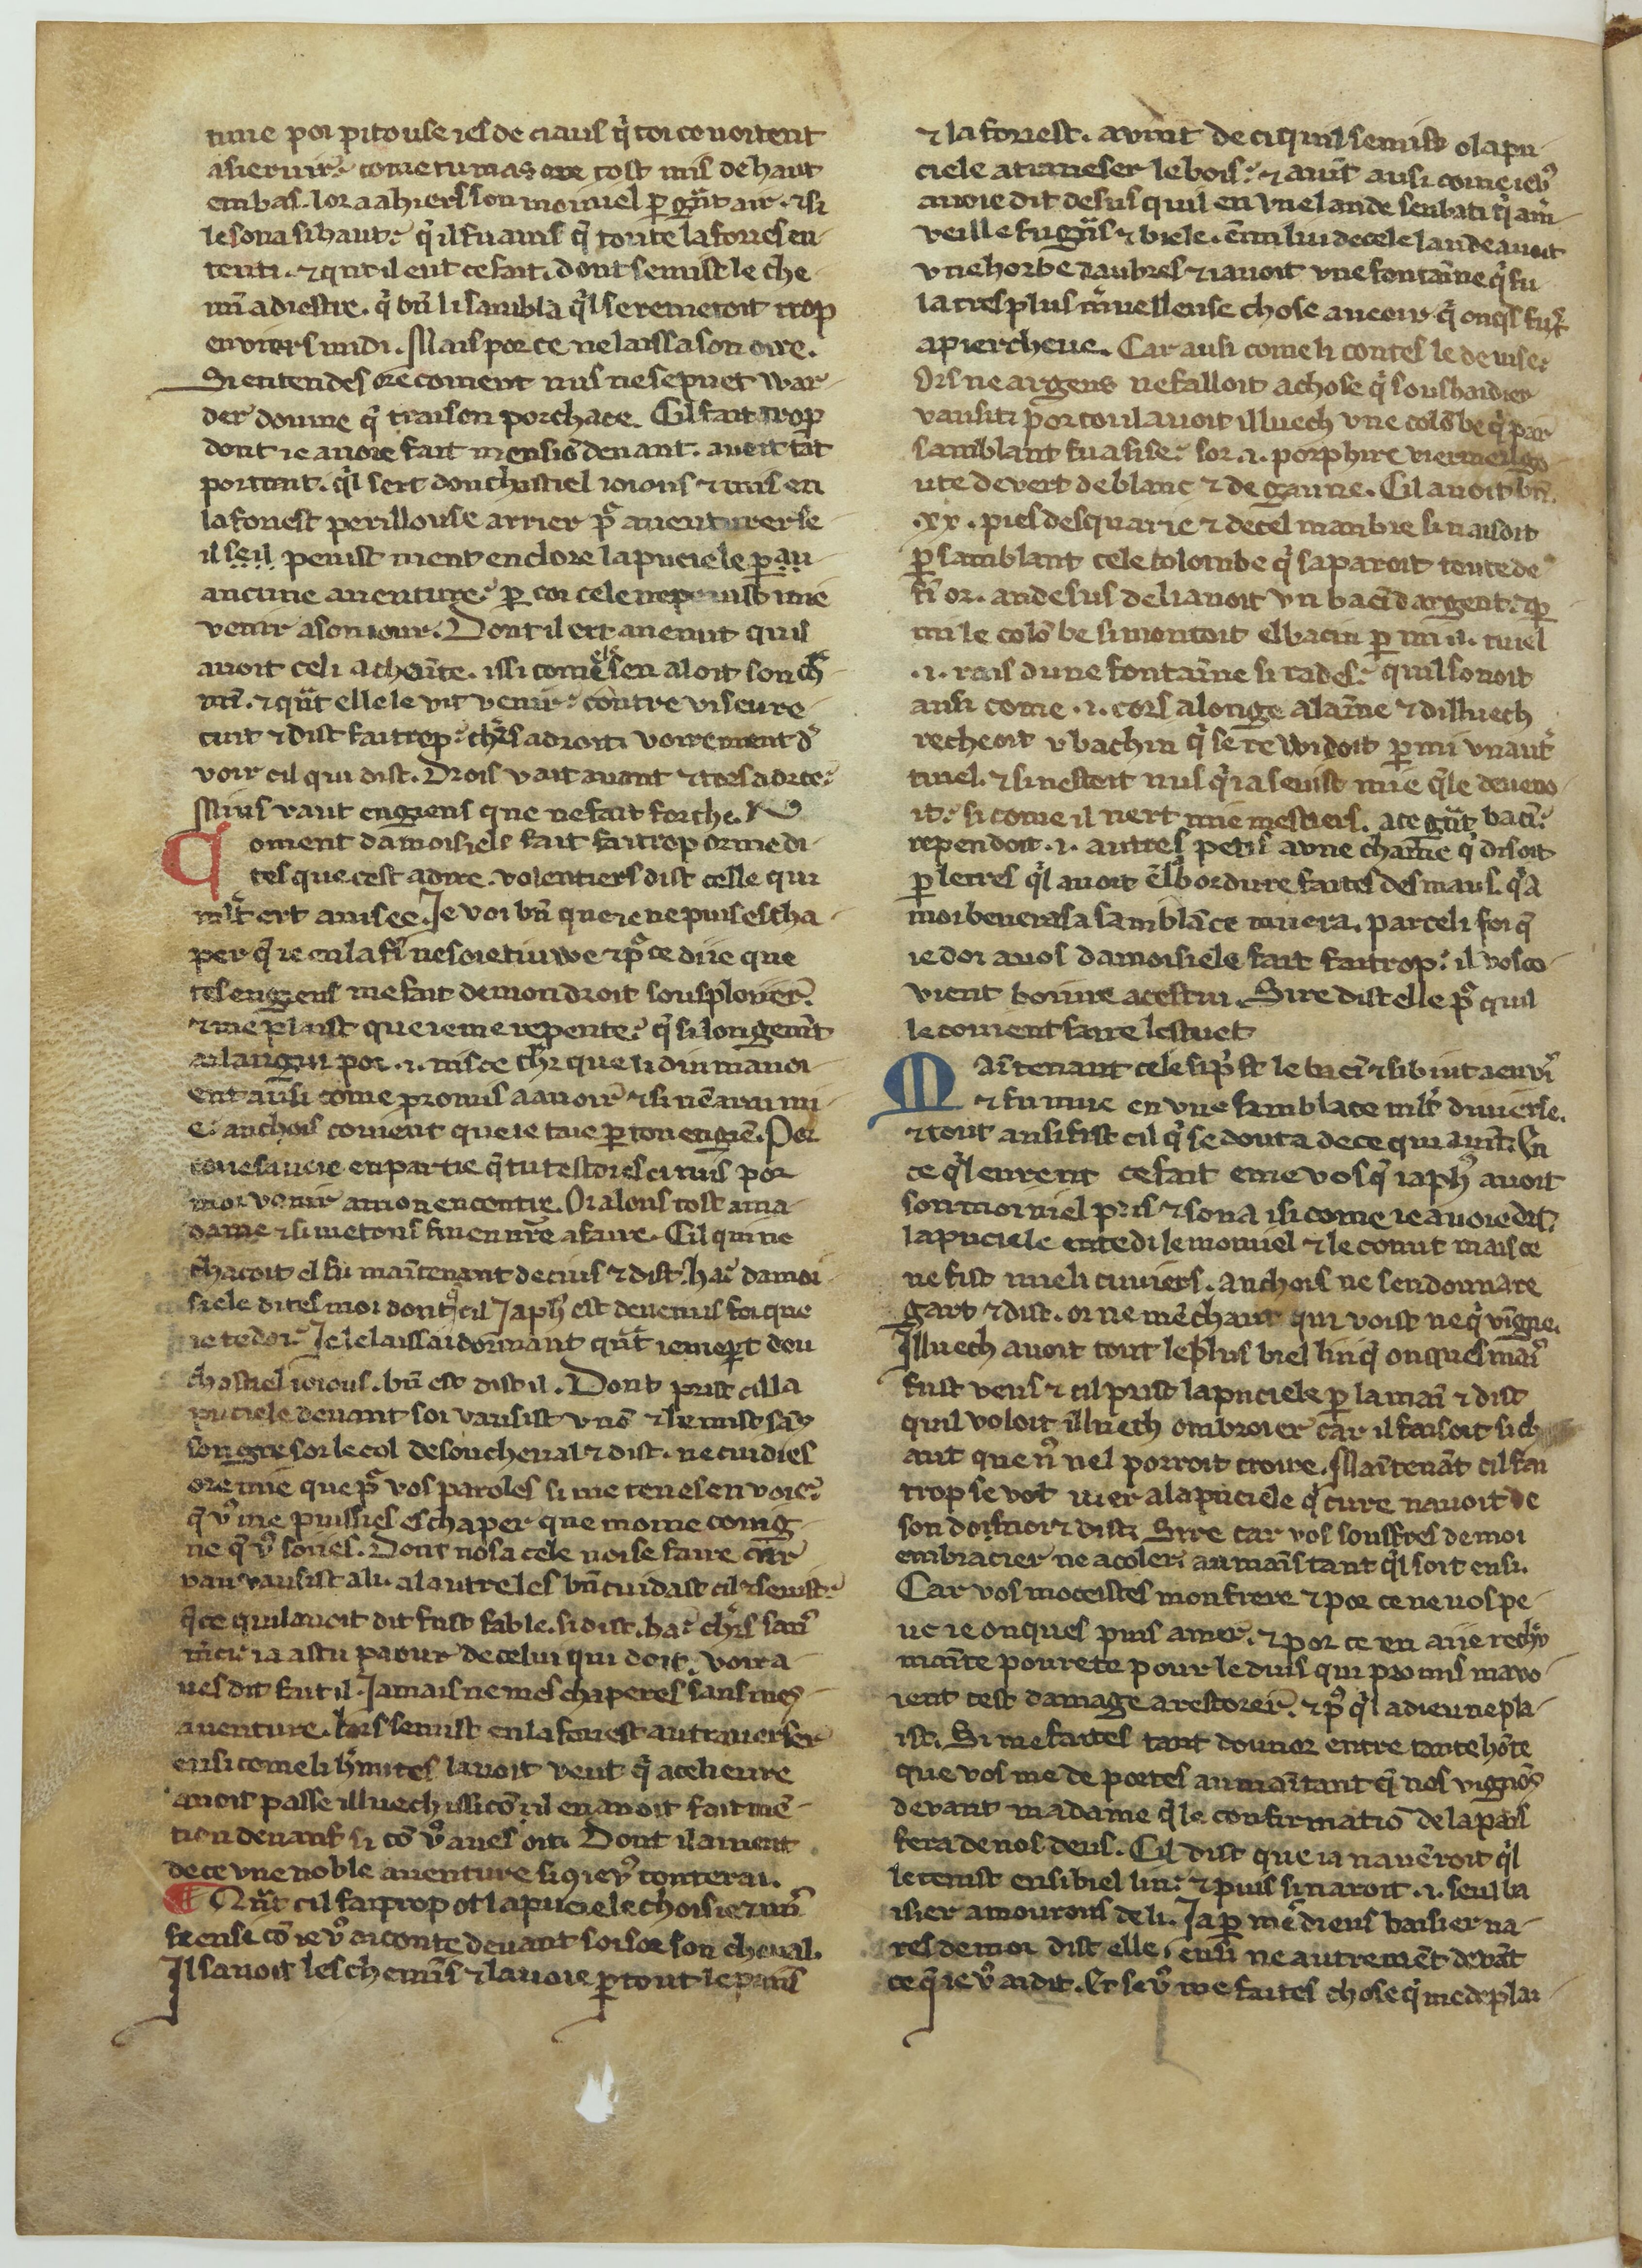 tune por pitouse ies de ciaus q̃ toi covoitent
aservir. come tu mas ore tost mis de haut
en bas. lor aahiers son moiniel ꝑ gũt air. ⁊ si
le sona si haut. q̃ il fu avis q̃ toute la fores en
tenti. ⁊ qñt il eut ce fait. dont se mist le che
mĩ a diestre. q̃ bñ li sambla q̃l se remetoit trop
en viers midi. Mais por ce ne laissa son oire.
Si entendes ore coment nus ne se puet war
der doume q̃ traison porchace. Cil fait trop
dont ie avoie fait mensiõ devant. avoit tãt
portant. q̃l sert dou chastiel ioious ⁊ mis en
la foriest perillouse arrier pᵒ aventurer se
il se il peuist nient enclore la puciele ꝑ au
aucune aventure. ꝑ coi cele ne peuist mie
venir a son iour. Dont il ert avenut quil
avoit celi achainte. issi come ele sen aloit son ch
mĩ. ⁊ qũt elle le vit venir. contre vis eure
cuit ⁊ dist faitrop. chᵉs adroit voirement dᵗ
voir cil qui dist. Drois vait avant ⁊ tors adrece.
Mius vaut engiens que ne fait forche.
Coment damoisiele fait faitrop or me di
tes que cest a dire. volentiers dist celle qui
mlt̃ ert avisee. Je voi bñ que ie ne puis escha
per q̃ ie en la fĩ ne soie tiuwe ⁊ pᵒ ce di ie que
tes engiens me fait de mon droit sousploiier.
⁊ me plaist que ie me repente. q̃ si longem̃t
ai langui por .i. nisce chr̃ que li diu m̃avoi
ent aussi come promis a avoir ⁊ si nẽ arai mi
e. anchois covient que ie taie ꝑ ton engiẽ. Por
en partie q̃ tu testoies ci mis por
moi venir a mon encontre. Or alons tost a ma
dame ⁊ si metons fin en nr̃e afaire. Cil qui ne
chacoit el fu maĩtenant de ciuis ⁊ dist. hai damoi
siele dites moi dont q̃ cil Japhᵗ est devenus foi que
ie te doi. Je le laissai dormant qñt ie me ꝑt dou
chastiel ioious. bñ est dist il. Dont prist cil la
puciele devant soi vausist v nõ ⁊ le mist sãs
son gre sor le col de son cheval ⁊ dist. ne cuidies
ore mie que pᵒ vos paroles si me tenes en voie.
q̃ vᵒ me puissies eschaper que moi me coing
ne q̃ vᵒ soies. Dont nosa cele noise faire car
pau vausist a li. al autre les bñ cuidast cil ⁊ seuist.
q̃ ce quil avoit dit fust fable. si dist. ha. chᵉs sans
m̃ci. ia as tu paour de celui qui doit. voir a
ves dit fait il. Jamais ne mes chaperes sans mes
aventure. lors se mist en la foriest au traverser
ensi come li hᵗmites lavoit veut q̃ a cele eure
avoit passe illuech issi cõ il en avoit fait mẽ
tion devant si cõ vᵒ aves oit. Dont il avient
de ce une noble aventure si q̃ ie vᵒ conterai.
Qñt cil faitrop ot la puciele choisie ⁊
si ensi cõ ie vᵒ ai conte devant soi sor son cheval.
Il savoit les chemĩs ⁊ la voie ꝑ tout le pais
⁊ la foriest. avint de ci quil se mist o la pu
ciele a traveser le bois. ⁊ avĩt ausi come ie vᵒ
avoie dit desus quil en une lande senbati q̃ a m̃
veille fu grãs ⁊ biele. Enmi liu de cele lande avoit
une horbe daubres ⁊ i avoit une fontaĩne q̃ fu
la tres plus m̃vellieuse chose aucoir q̃ onq̃s fust
apiercheue. Car ausi come li contes le devise.
Ors ne argens ne falloit a chose q̃ soushaidier
vausist por coi il avoit illuech une colõbe q̃ par
samblant fu asise. sor .i. porphire viermeil go
ute de vert de blanc ⁊ de gaune. Cil avoit bñ.
.xx. pies desquarie ⁊ de cel manbre si naisoit
ꝑ samblant cele colombe q̃ saparoit toute de
fĩ or. au desus de li avoit un bacĩ dargent. ⁊ ꝑ
mi le colõbe si montoit el bacin ꝑ mi .i. tuiel
.i. rais dune fontaĩne si rades. quil sonoit
ausi come .i. cors a longe alaĩne ⁊ dilluech
recheoit v bachin q̃ se rewidoit ꝑ mi un autᵉ
tuiel. ⁊ si nestoit nus q̃ ia seuist mie q̃le deveno
it. si come il nert mie mestiers. a ce gũt bacĩ.
rependoit .i. autres petis a une chaĩne q̃ disoit
ꝑ letres q̃l avoit el bordure faites desmaus. q̃ a
moi bevera sa samblãce muera. par celi foi q̃
ie doi a vos damoisiele fait faitrop. il vos co
vient boivre a cestui. Sire dist elle pᵒ quil
le covient faire lestuet
Maĩtenant cele si pᵉst le bacĩ ⁊ si b iut a envĩ
⁊ fu mue en une samblãce mlt̃ diverse.
⁊ tout ausi fist cil q̃ se douta de ce qui avĩt. En
ce q̃l eurent ce fait eme vos q̃ iaphᵗ avoit
son moiniel pris ⁊ sona isi come ie avoie dit.
la puciele entẽdi le moiniel ⁊ le conut mais ce
ne fist mie li cuviers. anchois ne sen donna re
gart ⁊ dist. or ne mẽ chaut qui voist ne q̃ vigne.
Illuech avoit tout le plus biel liu q̃ onques mais
fust veus ⁊ cil prist la puciele ꝑ la maĩ ⁊ dist
quil voloit illuech ombroier car il faisoit si ch
aut que nᵒ nel porroit croire. Maĩtenãt cil fai
trop se vot iuer a la puciele q̃ cure navoit de
son dosnoi ⁊ dist. Sire car vos souffres de moi
embracier ne acoler. au maĩs tant q̃l soit ensi.
Car vos mocesistes mon frere ⁊ por ce ne vos pe
uc ie onques puis amer. ⁊ por ce en ai ie rechᵗ
maĩte povrete pour le duis qui promis mavo
ient cest damage a restorer. ⁊ pᵒ q̃l a dieu ne pla
ist. Si me faites tant dounor entre tante hõte
que vos me deportes au maĩ tant q̃ nos vignõs
devant ma dame q̃ le confirmatiõ de la pais
fera de nos deus. Cil dist que ia navẽroit q̃l
le tenist en si biel liu. ⁊ puis si naroit .i. seul ba
isier amourous de li. Ja ꝑ mẽ dieus baisier na
res de moi dist elle. ensi ne autremẽt devãt
ce q̃ ie vᵒ ai dit. Et se vᵒ me faites chose q̃ me desplai